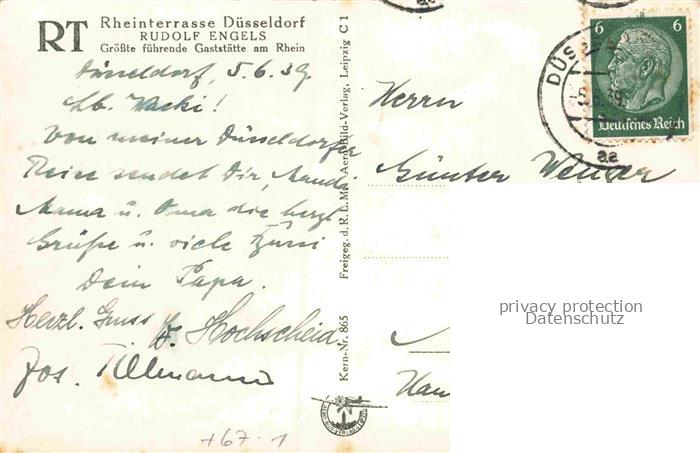 RT
Rheinterrasse Düsseldorf
RUDOLF ENGELS
Größte führende Gaststätte am Rhein
Düsseldorf, 5.6.39.
Lb. Wacki!
Von meiner Düsseldorfer
Reise sendet Dir,
Mama u. Oma die herzl
Grüße u. viele Bussi
Dein Papa.
Herzl. Gruss
Hochscheid.
Jos. Tillmann
+67-1
Kern-Nr. 865 Freigeg. d. R.L.M. Aero-Bild-Verlag, Leipzig C 1
Herrn
Günter Wenger
6 6
Deutsches Reich
DÜS
aa
privacy protection
Datenschutz